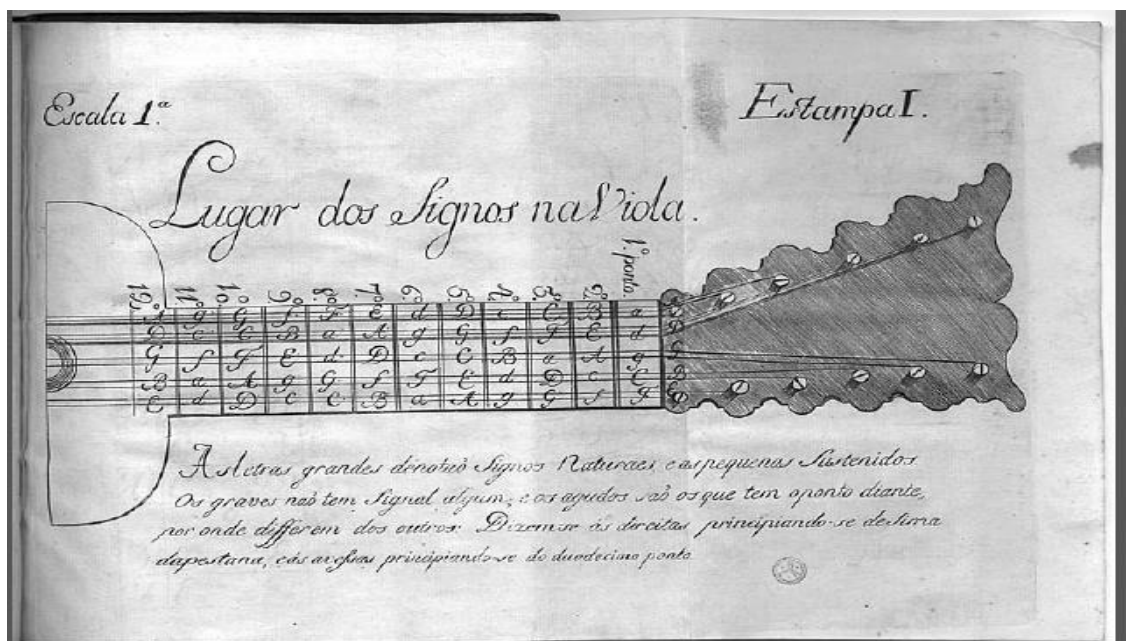 Escala 1ª.
Estampa I.
Lugar dos Signos na Viola.
12º 11º 10º 9º 8º 7º 6º 5º 4º 3º 2º 1º ponto.
A g G f F E d D c C B a A
D c C B a A g G f F E d D
G f F E d D c C B a A g G
B a A g G f F E d D c C B
E d D c C B a A g G f F E
As letras grandes denotaõ Signos Naturaes, e as pequenas Sustenidos
Os graves naõ tem Signal algum; e os agudos saõ os que tem o ponto diante,
por onde differem dos outros. Dizem-se às direitas principiando-se de sima
da pestana, e ás avessas principiando-se do duodecimo ponto